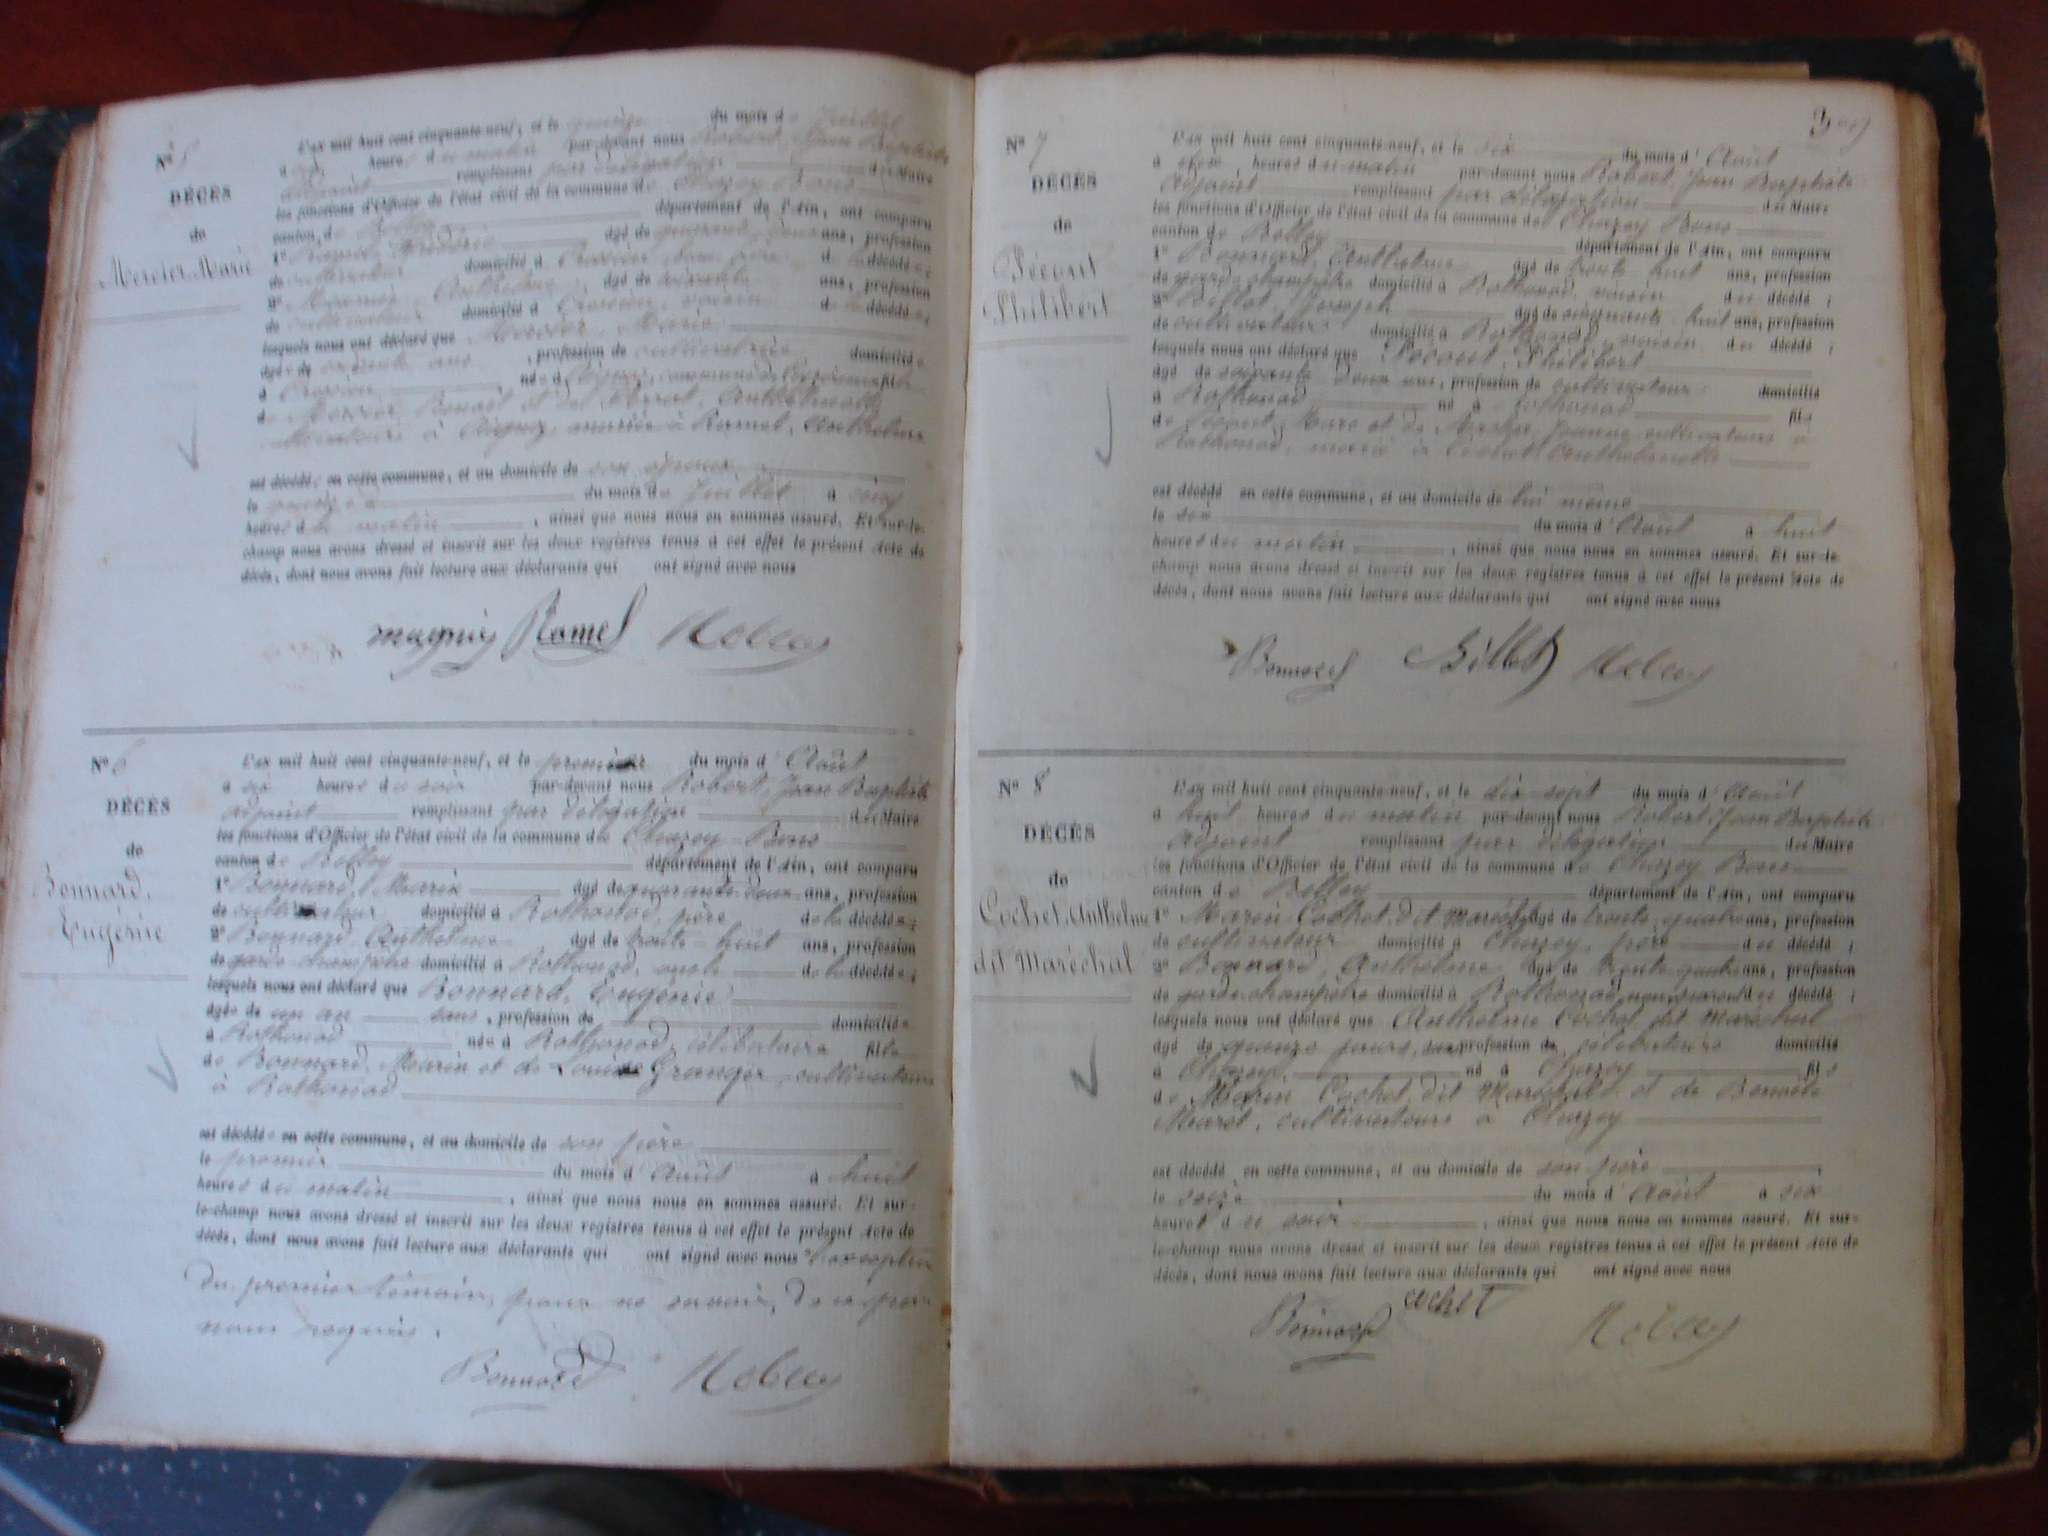 N° 5
DÉCÈS
de
Mercier Marie
L'an mil huit cent cinquante-neuf, et le du mois de Juillet
à heures du matin par-devant nous Robert, Jean Baptiste
adjoint remplissant par délégation du Maire
les fonctions d'Officier de l'état civil de la commune de Chazey Bons
canton de Belley département de l'Ain, ont comparu
1° âgé de quarante ans, profession
de domicilié à d décédé;
2° Anthelme, âgé de ans, profession
de cultivateur domicilié à voisin de la décédée;
lesquels nous ont déclaré que Mercier Marie
âgée de ans, profession de cultivatrice domiciliée
à née à commune de fille
de Mercier Benoit et de Anthelmette
à mariée à Ramel, Anthelme
est décédée en cette commune, et au domicile de son époux
le du mois de Juillet à cinq
heures du matin, ainsi que nous nous en sommes assuré. Et sur-le-
champ nous avons dressé et inscrit sur les deux registres tenus à cet effet le présent Acte de
décès, dont nous avons fait lecture aux déclarants qui ont signé avec nous
Ramel
N° 6
DÉCÈS
de
Bonnard,
Eugénie
L'an mil huit cent cinquante-neuf, et le premier du mois d'Août
à six heures du soir par-devant nous Robert, Jean Baptiste
adjoint remplissant par délégation du Maire
les fonctions d'Officier de l'état civil de la commune de Chazey-Bons
canton de Belley département de l'Ain, ont comparu
1° Bonnard, Marin âgé de quarante-deux ans, profession
de cultivateur domicilié à Rothonod, père de la décédée;
2° Bonnard, Anthelme âgé de trente-huit ans, profession
de garde-champêtre domicilié à Rothonod, oncle de la décédée;
lesquels nous ont déclaré que Bonnard, Eugénie
âgée de un an sans, profession de domiciliée
à Rothonod née à Rothonod, célibataire fille
de Bonnard, Marin et de Louise Granger, cultivateurs
à Rothonod
est décédée en cette commune, et au domicile de son père
le premier du mois d'Août à huit
heures du matin, ainsi que nous nous en sommes assuré. Et sur-
le-champ nous avons dressé et inscrit sur les deux registres tenus à cet effet le présent Acte de
décès, dont nous avons fait lecture aux déclarants qui ont signé avec nous à l'exception
du premier témoin, pour ne savoir, de ce par
nous requis.
Bonnard
N° 7
DÉCÈS
de
Pécout
Philibert
L'an mil huit cent cinquante-neuf, et le six du mois d'Août
à dix heures du matin par-devant nous Robert, Jean Baptiste
adjoint remplissant par délégation du Maire
les fonctions d'Officier de l'état civil de la commune de Chazey Bons
canton de Belley département de l'Ain, ont comparu
1° Bonnard, Anthelme âgé de trente-huit ans, profession
de garde-champêtre domicilié à Rothonod voisin du décédé;
2° Billot, Joseph âgé de cinquante-huit ans, profession
de cultivateur domicilié à Rothonod voisin du décédé;
lesquels nous ont déclaré que Pécout, Philibert
âgé de soixante-deux ans, profession de cultivateur domicilié
à Rothonod né à Rothonod fils
de Pécout, Marc et de Jeanne cultivateurs à
Rothonod, marié à Anthelmette
est décédé en cette commune, et au domicile de lui même
le six du mois d'Août à huit
heures du matin, ainsi que nous nous en sommes assuré. Et sur-le-
champ nous avons dressé et inscrit sur les deux registres tenus à cet effet le présent Acte de
décès, dont nous avons fait lecture aux déclarants qui ont signé avec nous
Bonnard Billot
N° 8
DÉCÈS
de
Cochet, Anthelme
dit Maréchal
L'an mil huit cent cinquante-neuf, et le dix-sept du mois d'Août
à huit heures du matin par-devant nous Robert, Jean Baptiste
adjoint remplissant par délégation du Maire
les fonctions d'Officier de l'état civil de la commune de Chazey Bons
canton de Belley département de l'Ain, ont comparu
1° Marin Cochet, dit Maréchal âgé de trente-quatre ans, profession
de cultivateur domicilié à Chazey, père du décédé;
2° Bonnard, Anthelme âgé de ans, profession
de garde-champêtre domicilié à Rothonod, non parent du décédé;
lesquels nous ont déclaré que Anthelme Cochet dit Maréchal
âgé de quinze jours, sans profession de célibataire domicilié
à Chazey, né à Chazey fils
de Marin Cochet, dit Maréchal et de
cultivateurs à Chazey
est décédé en cette commune, et au domicile de son père,
le seize du mois d'Août à six
heures du soir, ainsi que nous nous en sommes assuré. Et sur-
le-champ nous avons dressé et inscrit sur les deux registres tenus à cet effet le présent Acte de
décès, dont nous avons fait lecture aux déclarants qui ont signé avec nous
Bonnard cochet